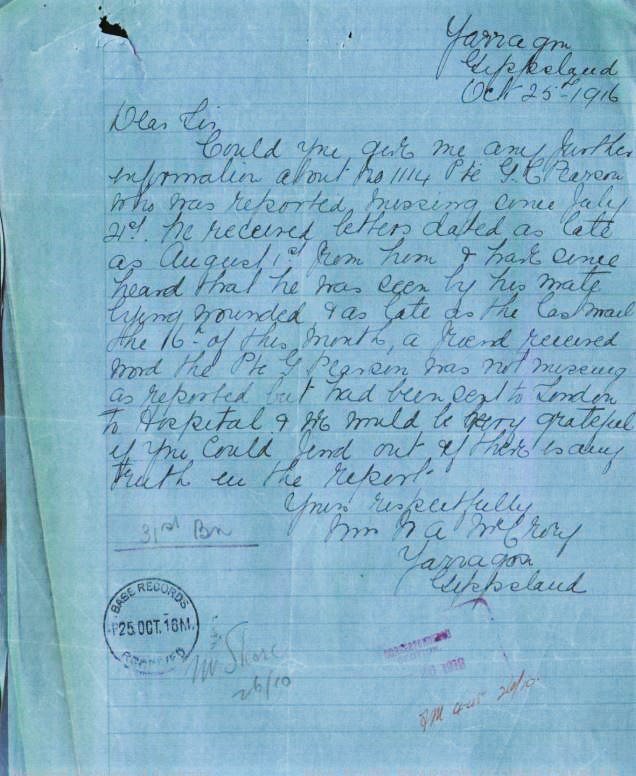 Yarragon
Gippsland
Oct 25th 1916
Dear Sir
Could you give me any further
information about No 1114 Pte G. C Pearson
who was reported missing since July
21st. We received letters dated as late
as August 1st from him & have since
heard that he was seen by his mate
lying wounded & as late as the last mail
the 16th of this month, a friend received
word the Pte G Pearson was not missing
as reported but had been sent to London
to Hospital & we would be very grateful
if you could find out if there is any
truth in the report.
Yours respectfully
Mrs W A McCrory
Yarragon
Gippsland
31st Bn
BASE RECORDS
P25.OCT.16M.
Mr Shore
26/10